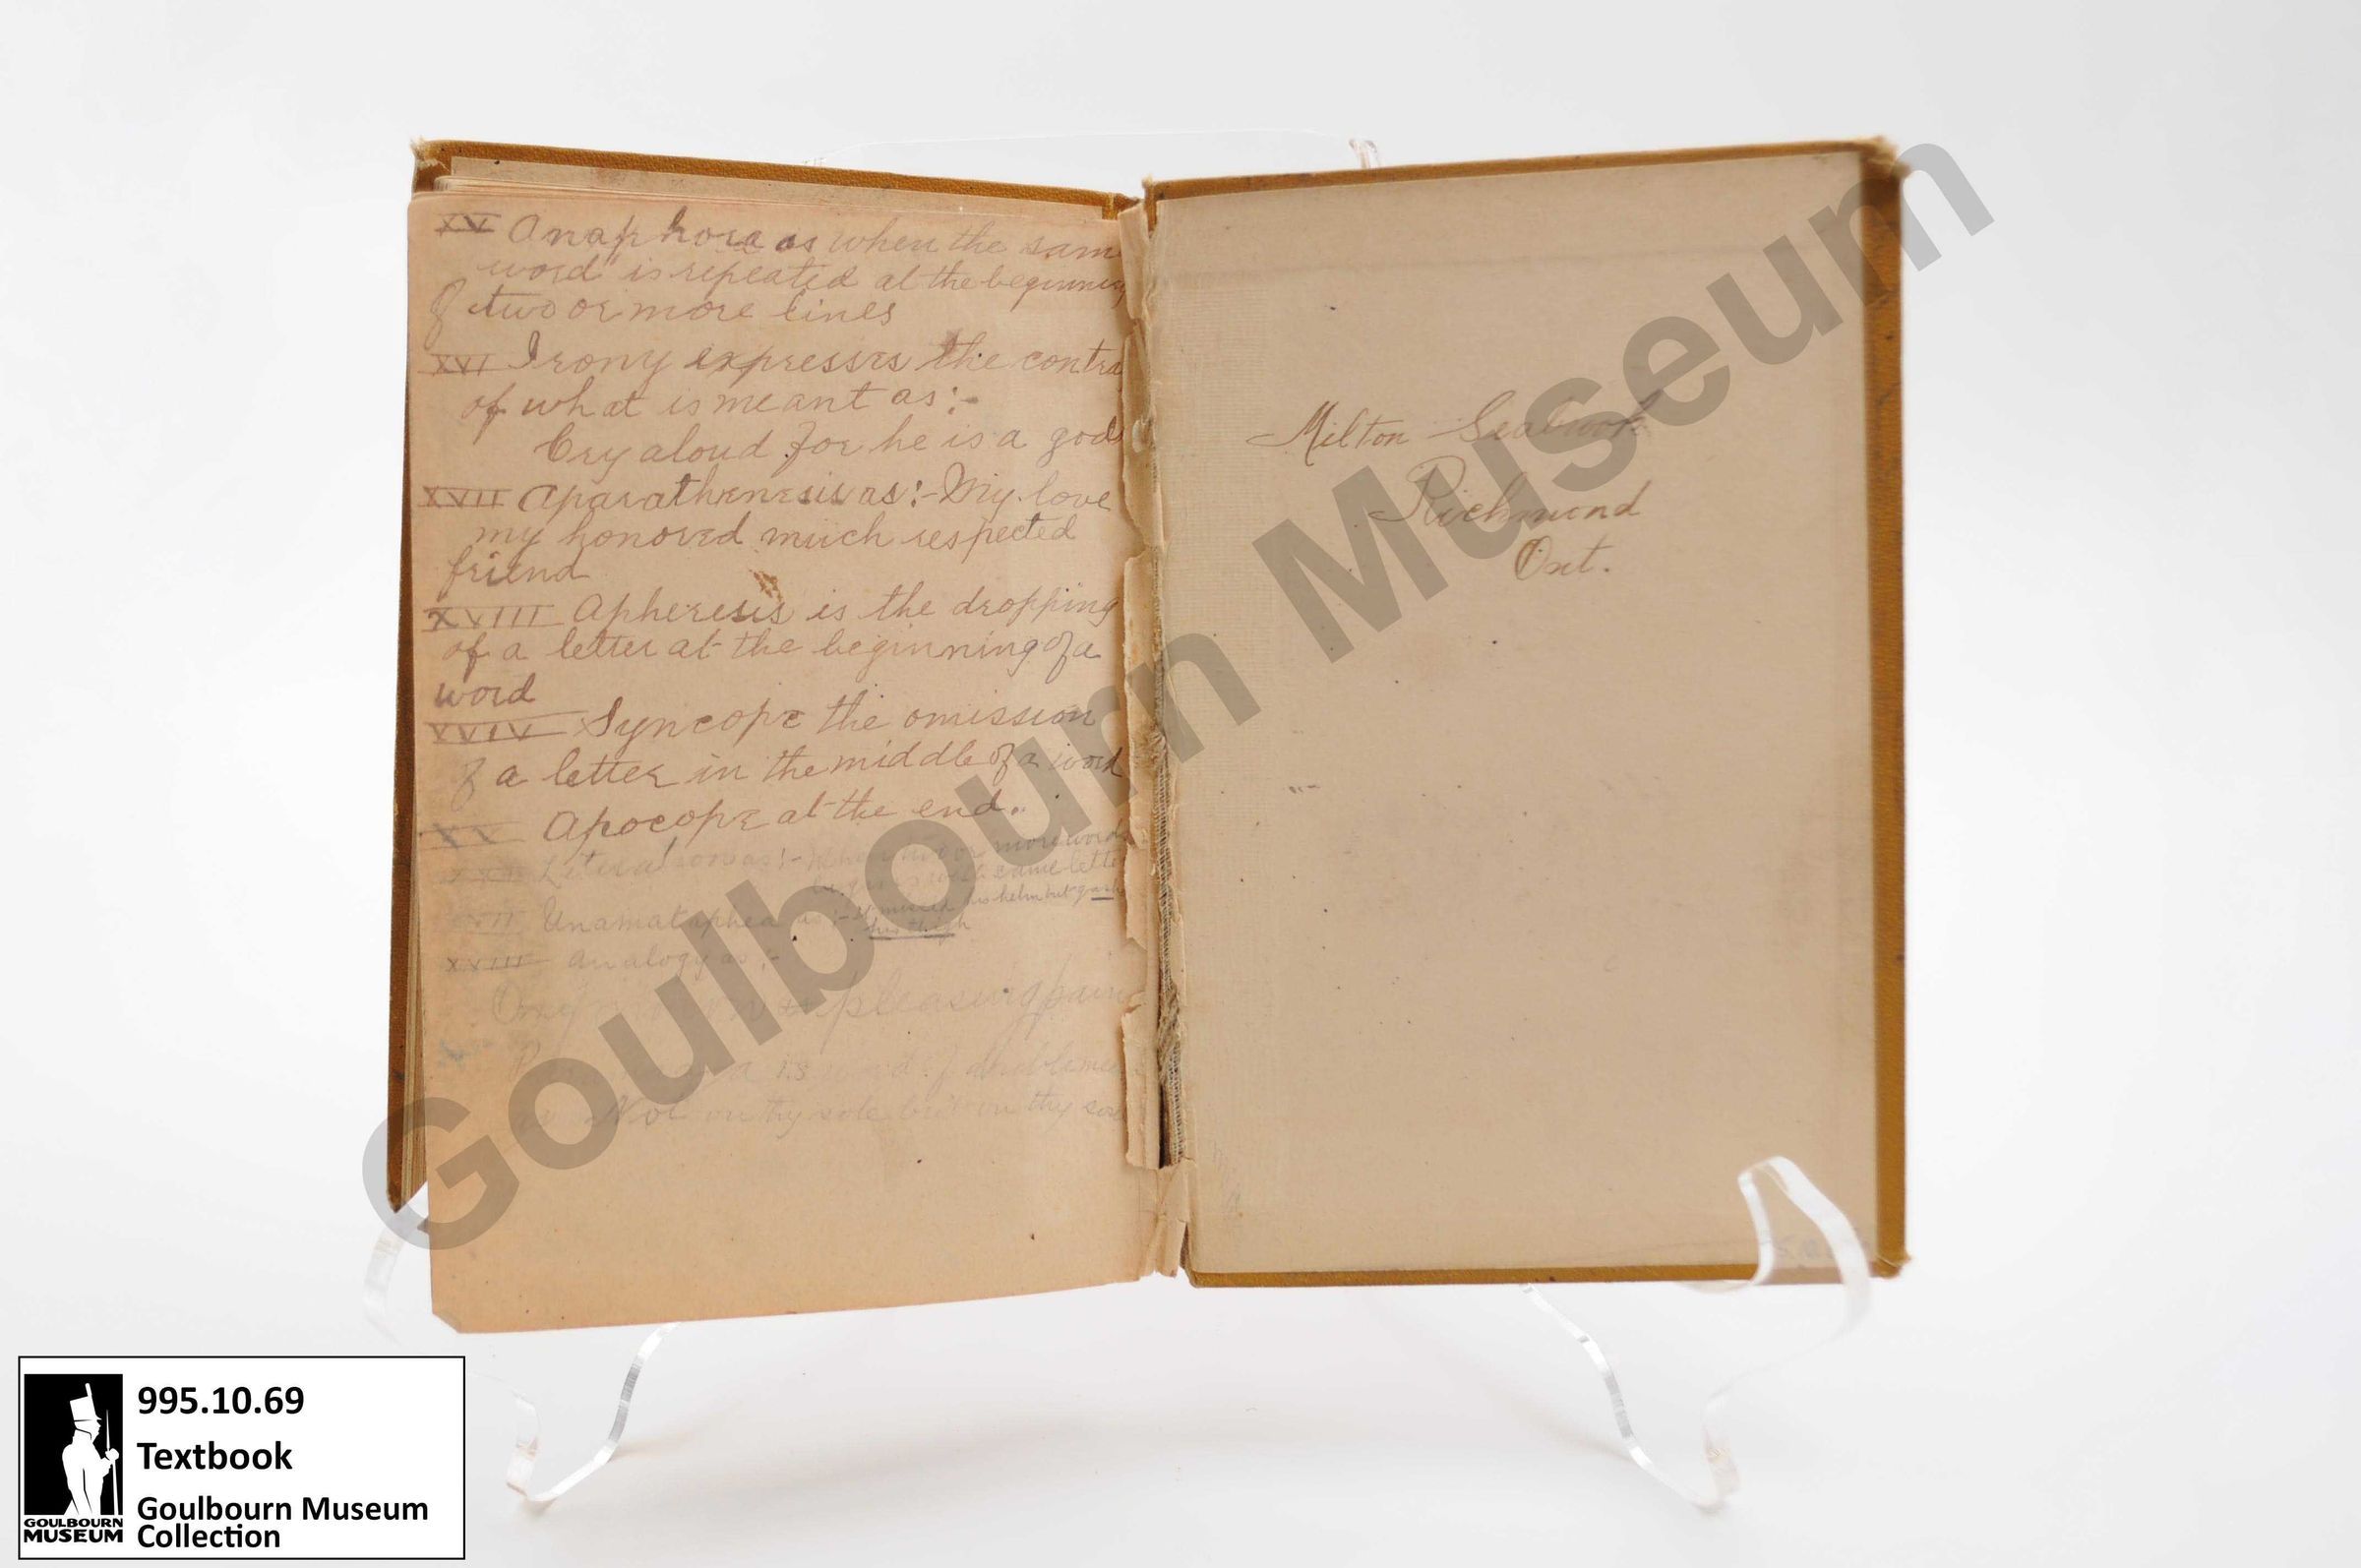 XV Anaphora as when the sam
word is repeated at the beginning
of two or more lines
XVI Irony expresses the contra
of what is meant as:-
Cry aloud for he is a god
XVII Aparathenesis as:- My love
my honored much respected
friend
XVIII Apheresis is the dropping
of a letter at the beginning of a
word
XVIV Syncope the omission
of a letter in the middle of a word
XX Apocope at the end.
as:- when two or more words
same lette
XXII Unamatophea as:- It missed his helm but gash
his thigh
XVIII Analogy as:-
pleasing pain
is
as Not on thy sole but on thy sou
Milton Seabrook
Richmond
Ont.
Goulbourn Museum
995.10.69
Textbook
Goulbourn Museum
Collection
GOULBOURN
MUSEUM